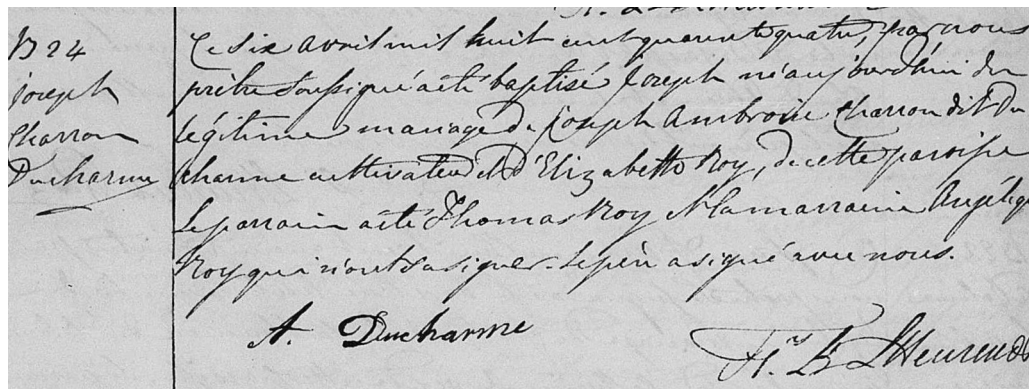 B 24
Joseph
Charron
Ducharme
Ce six avril mil huit cent quarante quatre, par nous
prêtre soussigné a été baptisé Joseph né aujourdhui du
légitime mariage de Joseph Ambroise Charron dit Du
charme cultivateur et d'Elizabette Roy, de cette paroisse
Le parrain a été Thomas Roy et la marraine Angéliq
Roy qui n'ont sa signer. Le père a signé avec nous.
A. Ducharme